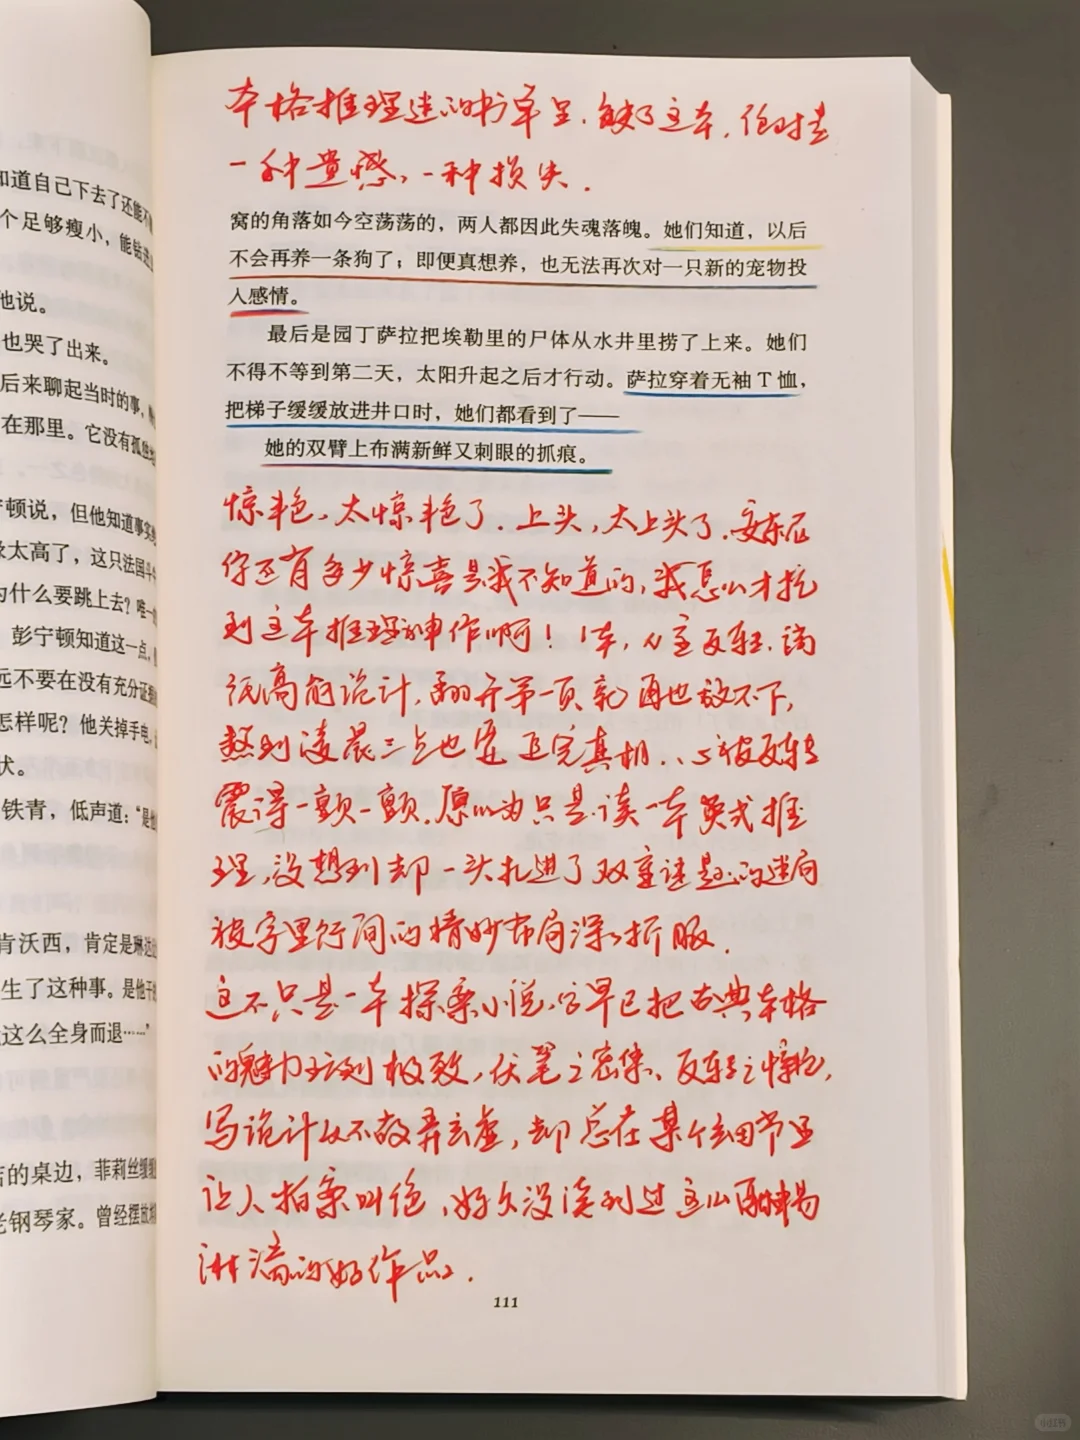 知道自己下去了还能不
个足够瘦小，能钻进
他说。
也哭了出来。
后来聊起当时的事，
在那里。它没有孤独
顿说，但他知道事实
太高了，这只法国斗
为什么要跳上去？唯一
彭宁顿知道这一点，
远不要在没有充分证据
怎样呢？他关掉手电，
状。
铁青，低声道：“是他
肯沃西，肯定是琳达
生了这种事。是他干
这么全身而退……”
的桌边，菲莉丝缓缓
老钢琴家。曾经摆放
本格推理迷的书单里，缺了这本，绝对是
一种遗憾，一种损失.
窝的角落如今空荡荡的，两人都因此失魂落魄。她们知道，以后
不会再养一条狗了；即便真想养，也无法再次对一只新的宠物投
入感情。
最后是园丁萨拉把埃勒里的尸体从水井里捞了上来。她们
不得不等到第二天，太阳升起之后才行动。萨拉穿着无袖T恤，
把梯子缓缓放进井口时，她们都看到了——
她的双臂上布满新鲜又刺眼的抓痕。
惊艳，太惊艳了．上头，太上头了．安东尼
你还有多少惊喜是我不知道的，我怎么才挖
到这本推理神作啊！1本，八重反转，
高能诡计，翻开第一页就再也放不下，
熬到凌晨三点也要追完真相，心被反转
震得一颤一颤，原以为只是读一本英式推
理，没想到却一头扎进了双重谜题的迷局
被字里行间的精妙布局深深折服．
这不只是一本探案小说，它早已把古典本格
的魅力玩到极致，伏笔之密集、反转之惊艳，
写诡计从不故弄玄虚，却总在某个细节里
让人拍案叫绝，好久没读到过这么酣畅
淋漓的好作品．
111